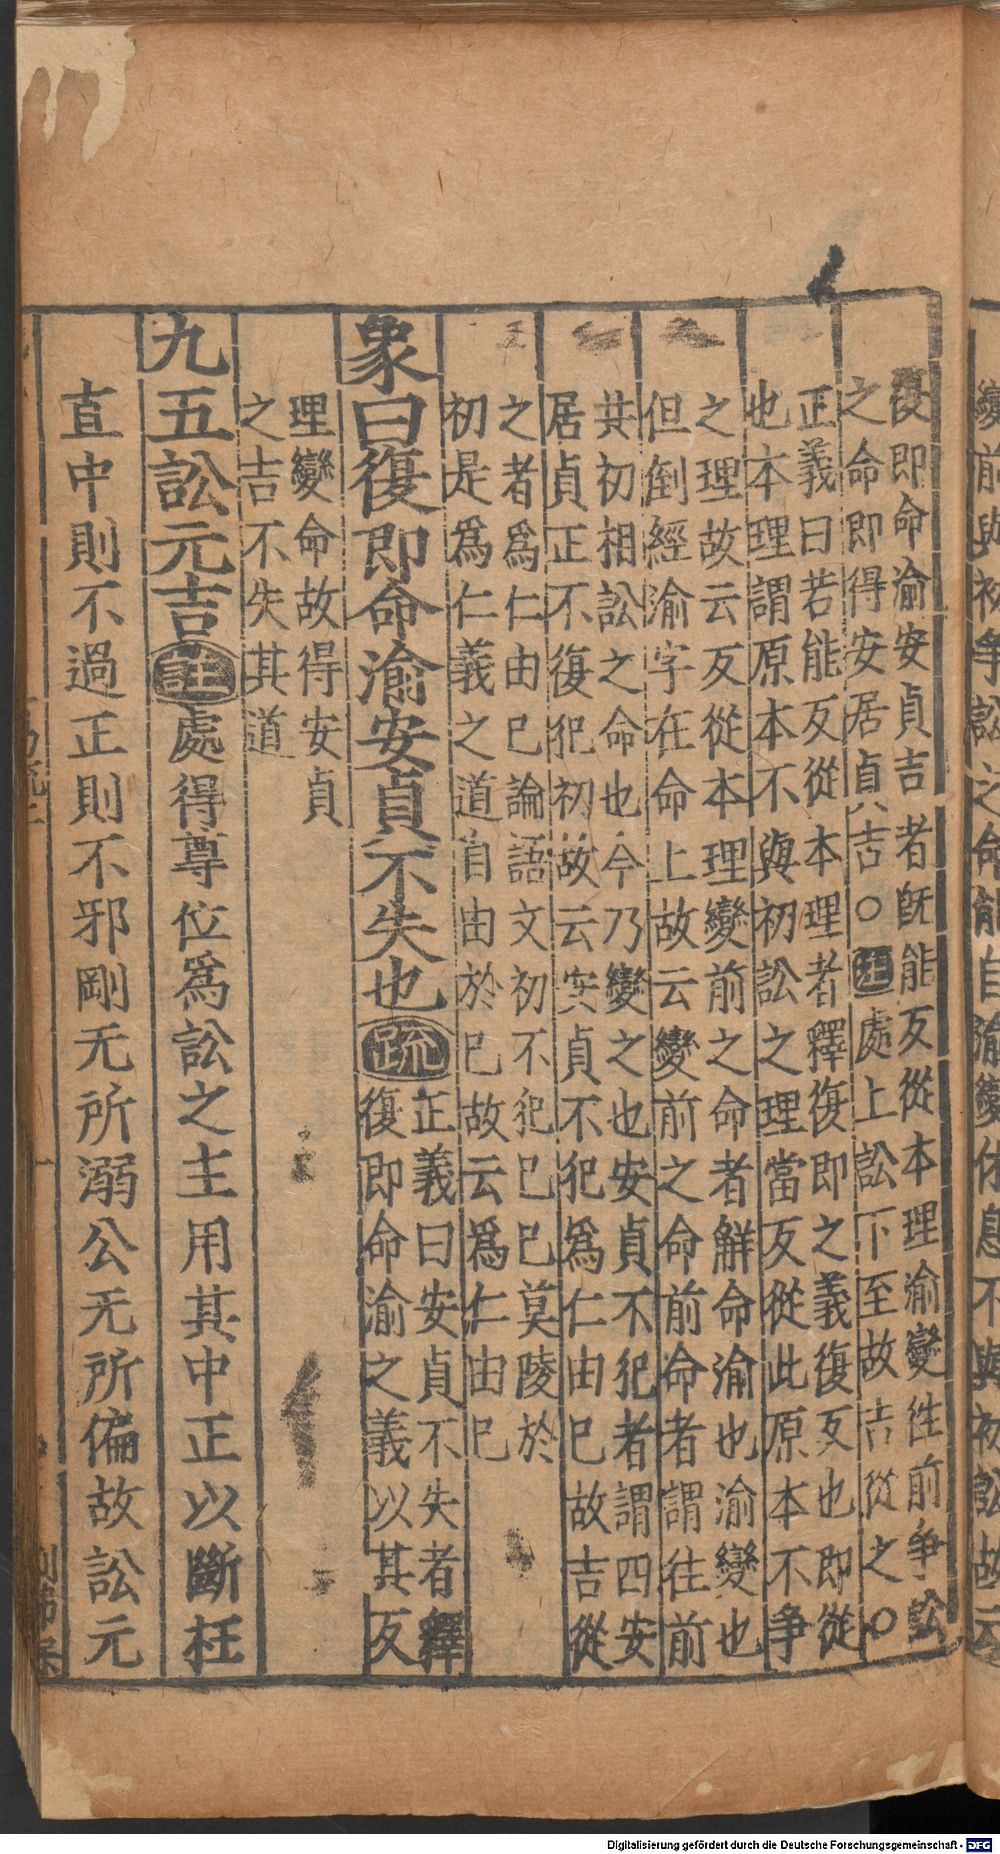 變前與初爭訟之命能自渝變休息不與初訟故云
復即命渝安貞吉者既能反從本理渝變往前爭訟
之命即得安居貞吉○註處上訟下至故吉從之○
正義曰若能反從本理者釋復即之義復反也即從
也本理謂原本不與初訟之理當反從此原本不爭
之理故云反從本理變前之命者解命渝也渝變也
但倒經渝字在命上故云變前之命前命者謂往前
共初相訟之命也今乃變之也安貞不犯者謂四安
居貞正不復犯初故云安貞不犯爲仁由巳故吉從
之者爲仁由巳論語文初不犯巳巳莫陵於
初是爲仁義之道自由於巳故云爲仁由巳
象曰復即命渝安貞不失也疏正義曰安貞不失者釋
復即命渝之義以其反
理變命故得安貞
之吉不失其道
九五訟元吉註處得尊位爲訟之主用其中正以斷枉
直中則不過正則不邪剛无所溺公无所偏故訟元
Digitalisierung gefördert durch die Deutsche Forschungsgemeinschaft - DFG